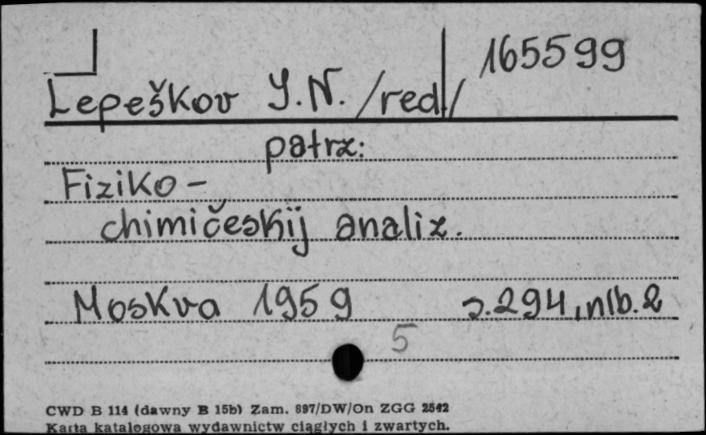 165599
Lepeškov J.N. /red./
patrz:
Fiziko-
chimičeskij analiz.
Moskva 1959 s.294, nlb.2
5
CWD B 114 (dawny B 15b) Zam. 897/DW/On ZGG 2542
Karta katalogowa wydawnictw ciągłych i zwartych.